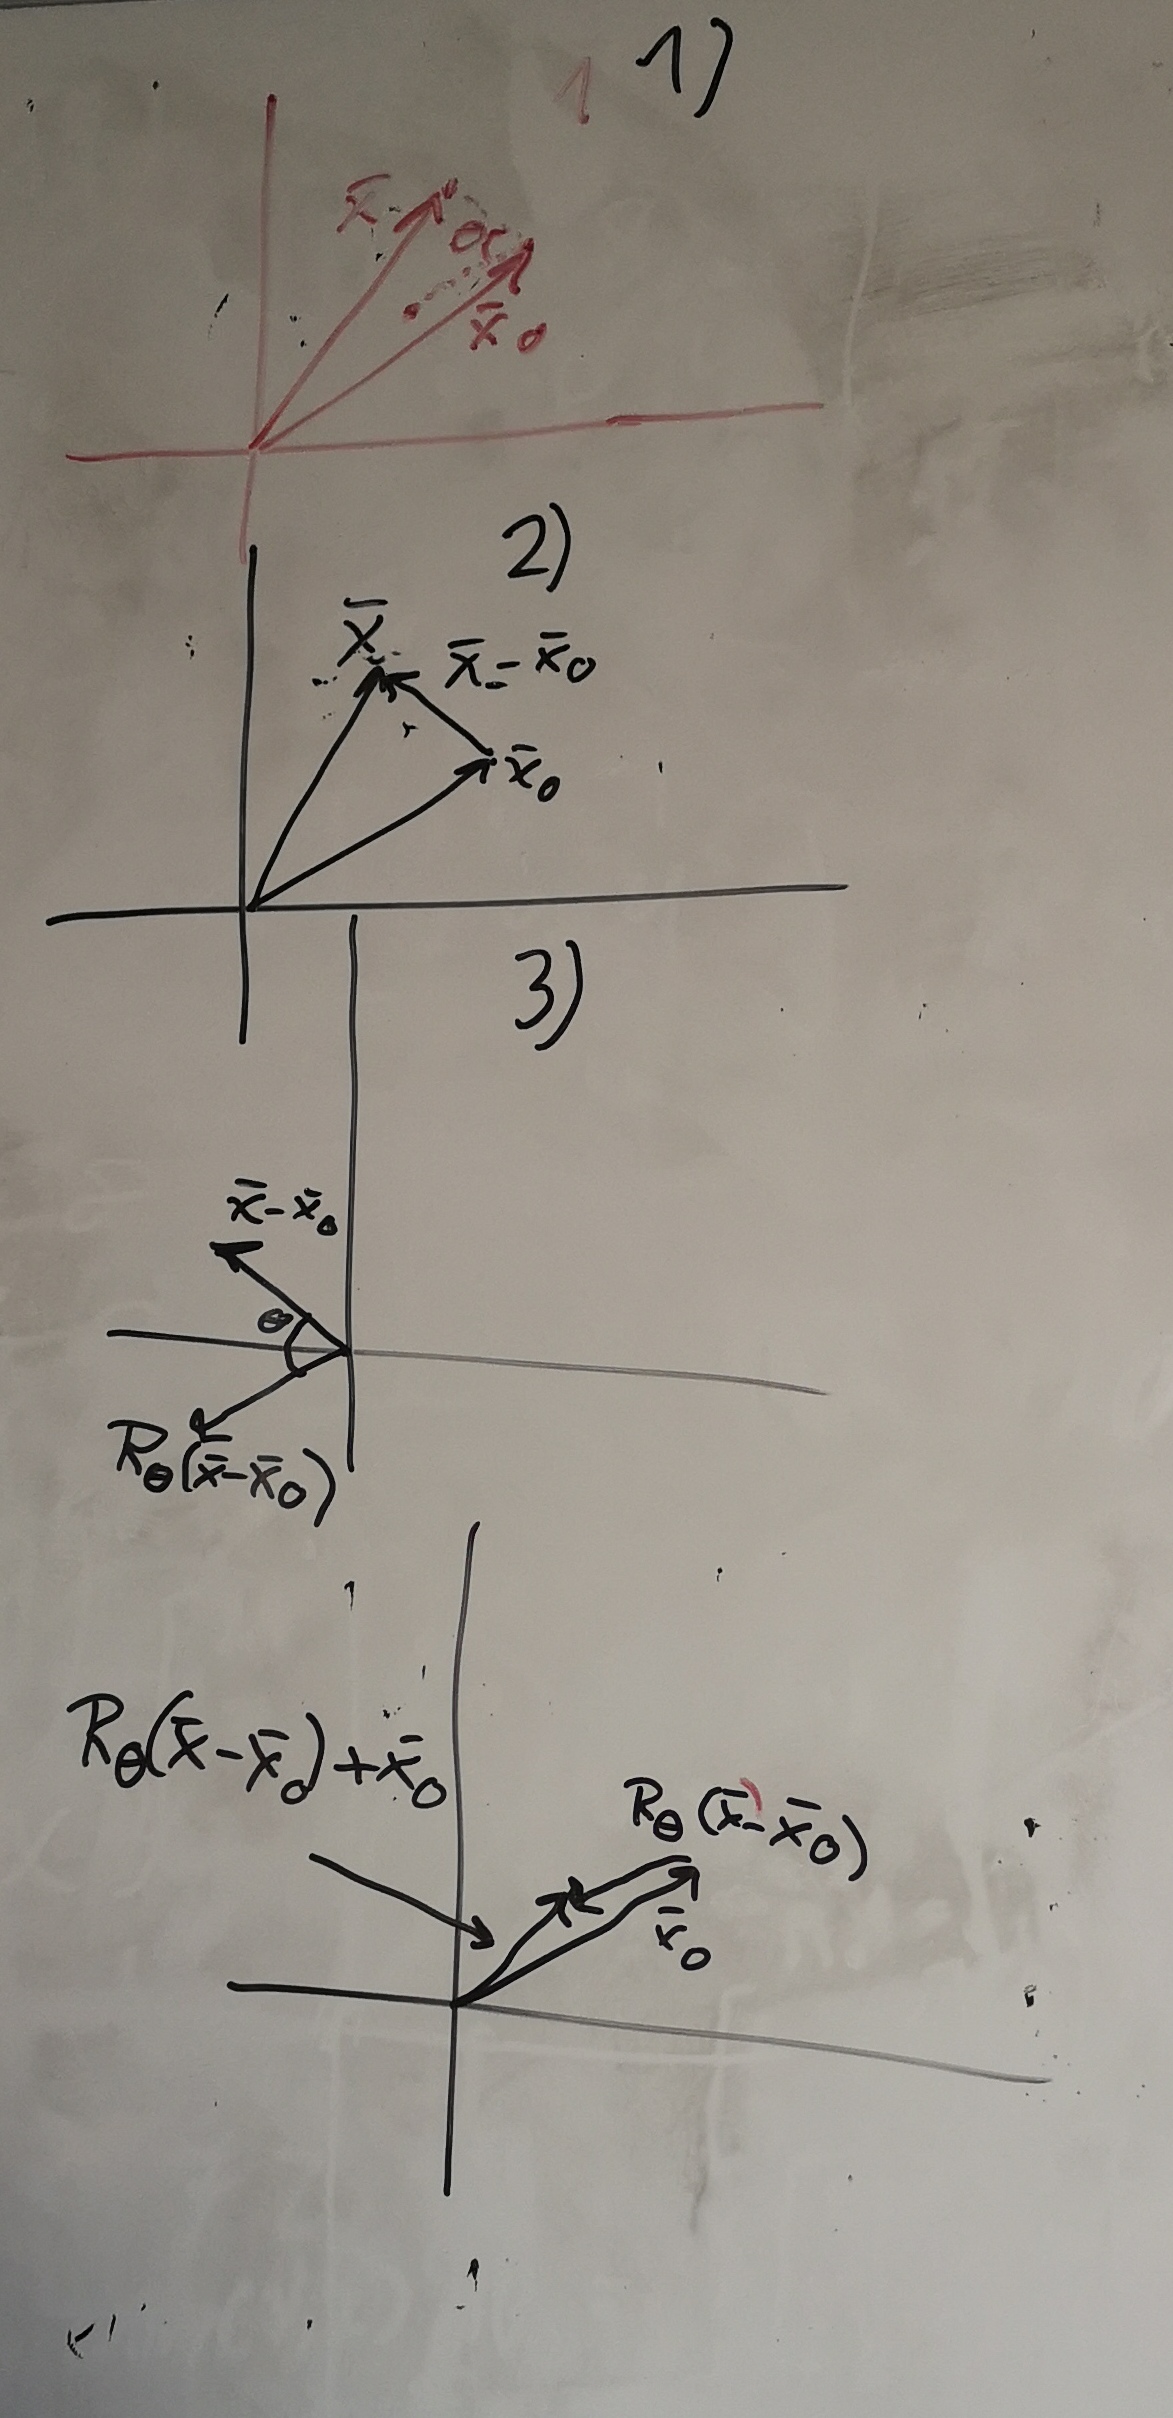 1 1)
x̄ α
x̄0
2)
x̄ x̄-x̄0
x̄0
3)
x̄-x̄0
θ
Rθ(x̄-x̄0)
Rθ(x̄-x̄0)+x̄0
Rθ(x̄-x̄0)
x̄0